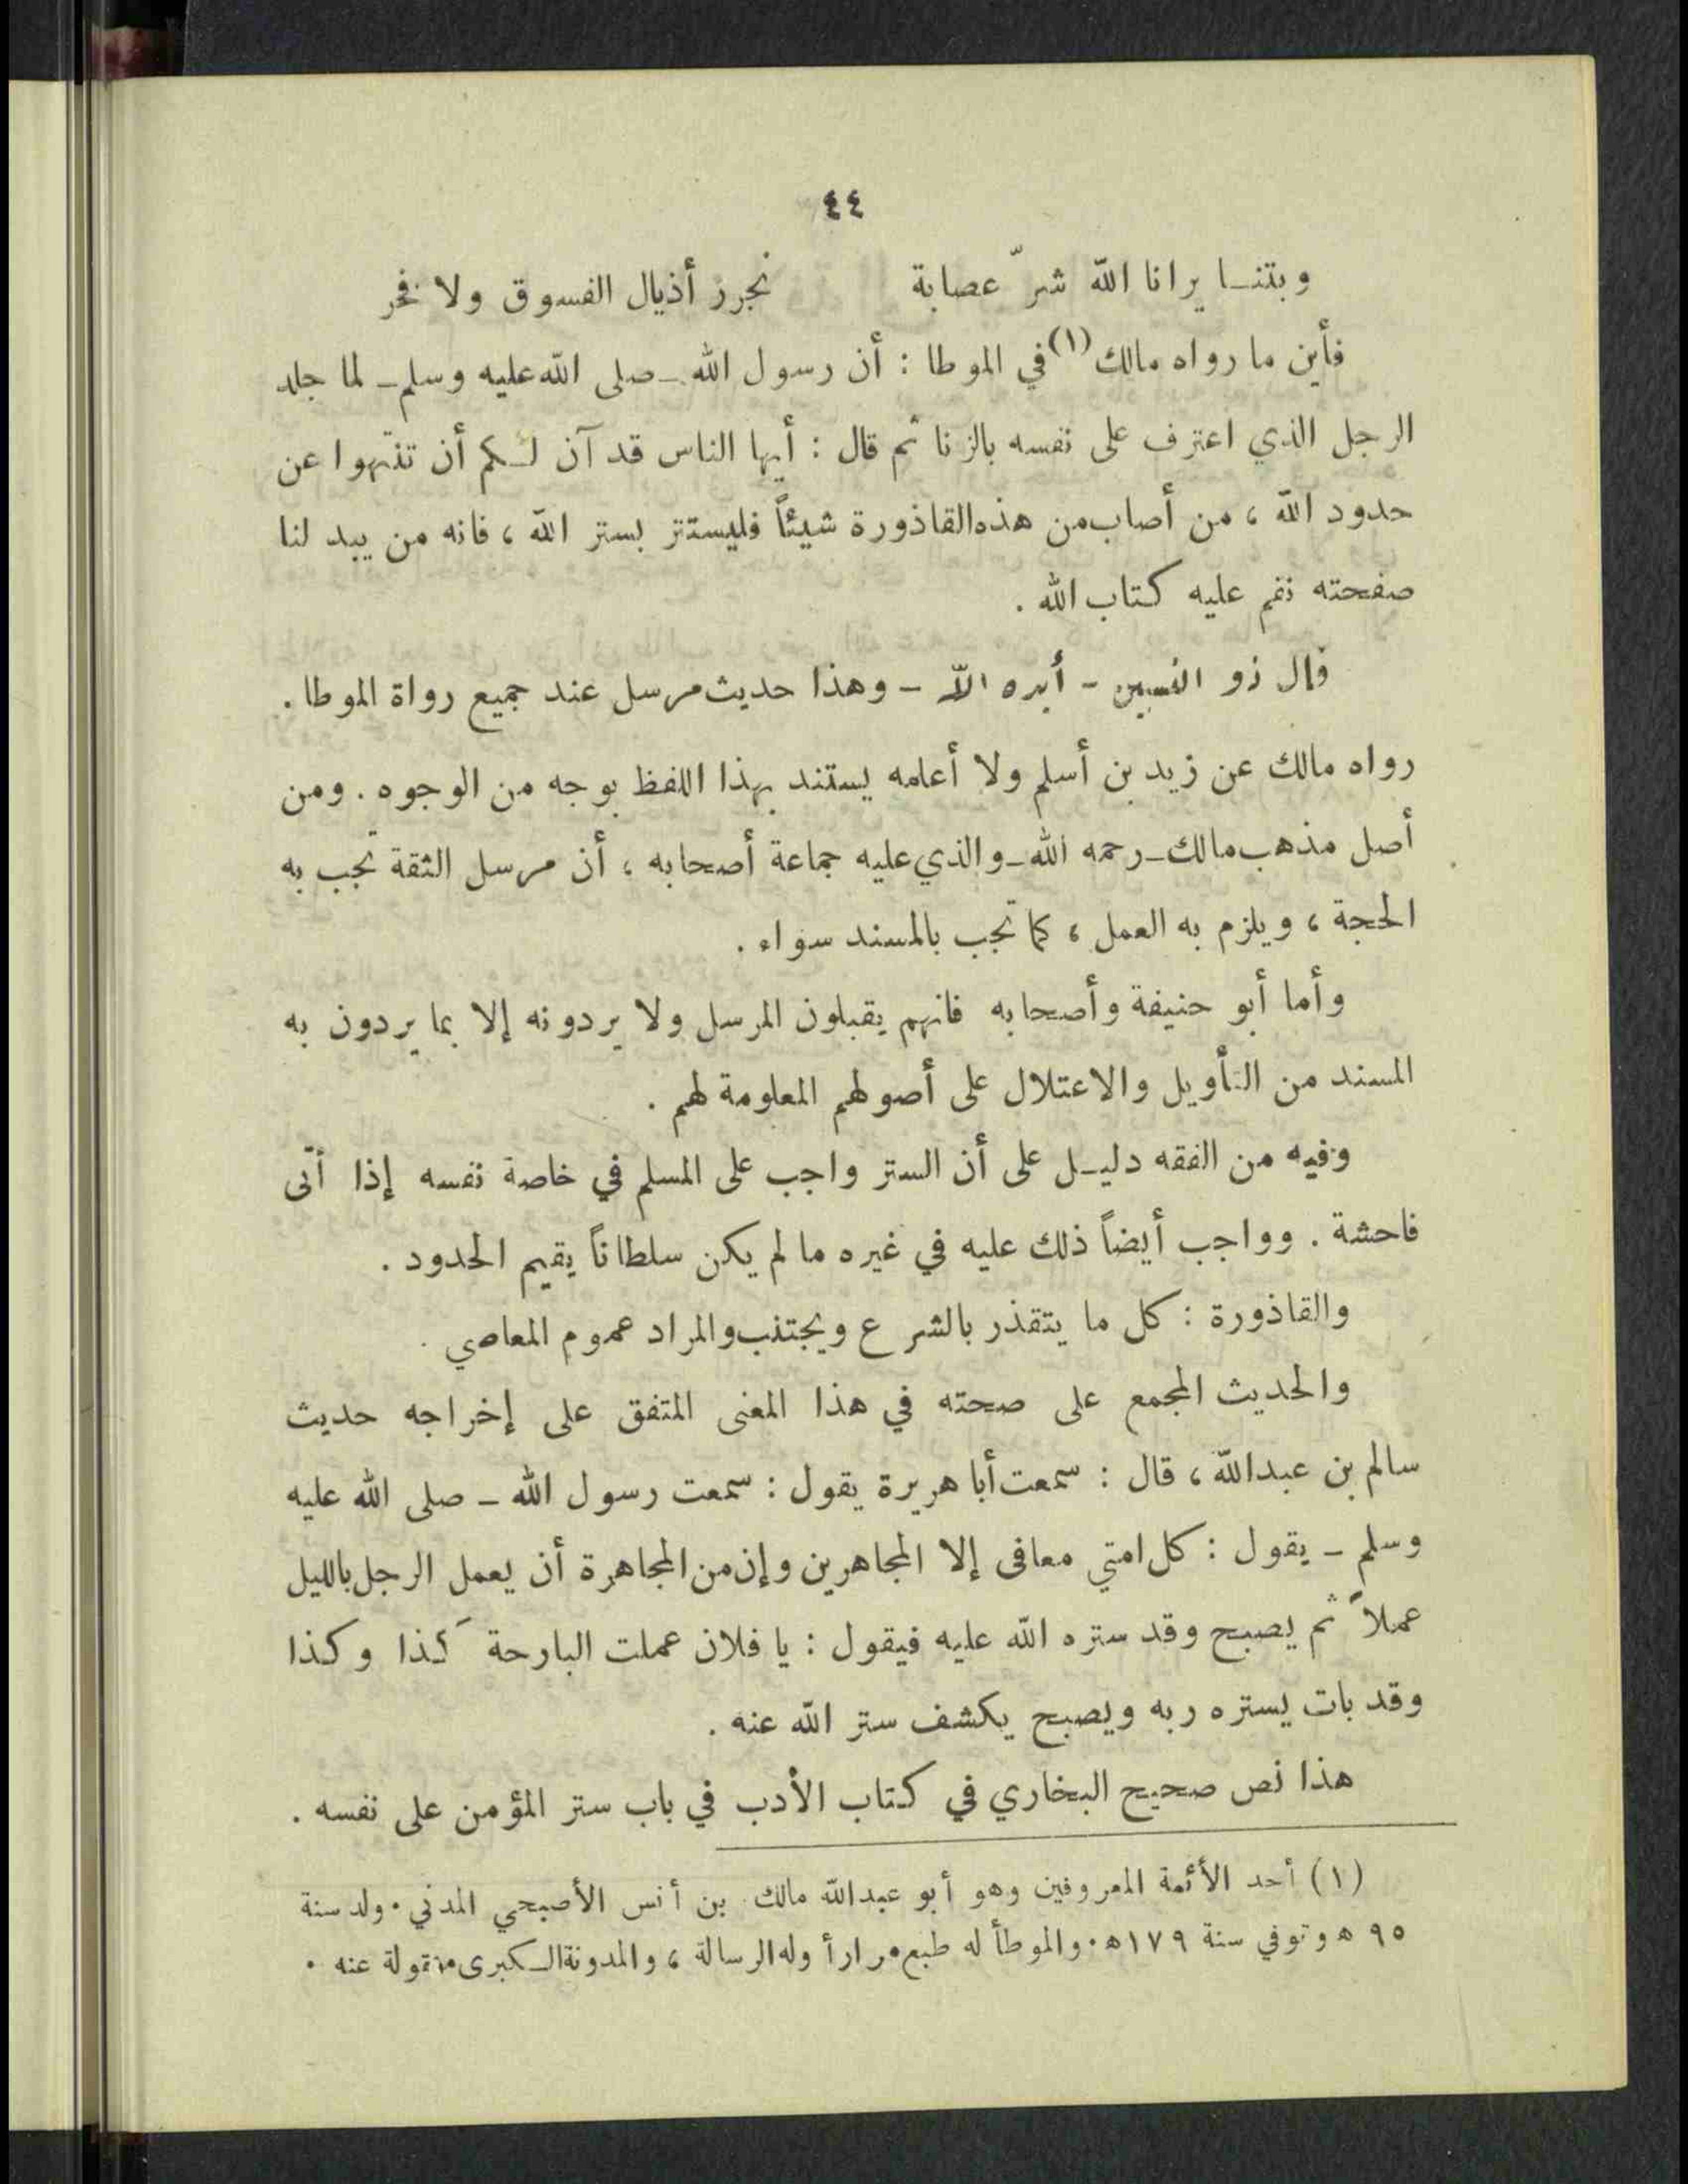 ٤٤
وبتنا يرانا الله شرّ عصابة نجرر أذيال الفسوق ولا فخر
فأين ما رواه مالك (١) في الموطا : أن رسول الله - صلى الله عليه وسلم - لما جلد
الرجل الذي اعترف على نفسه بالزنا ثم قال : أيها الناس قد آن لكم أن تنتهوا عن
حدود الله ، من أصاب من هذه القاذورة شيئاً فليستتر بستر الله ، فانه من يبد لنا
صفحته نقم عليه كتاب الله .
قال ذو النسبين - أيده الله - وهذا حديث مرسل عند جميع رواة الموطا .
رواه مالك عن زيد بن أسلم ولا أعلمه يستند بهذا اللفظ بوجه من الوجوه . ومن
أصل مذهب مالك - رحمه الله - والذي عليه جماعة أصحابه ، أن مرسل الثقة تجب به
الحجة ، ويلزم به العمل ، كما تجب بالمسند سواء .
وأما أبو حنيفة وأصحابه فانهم يقبلون المرسل ولا يردونه إلا بما يردون به
المسند من التأويل والاعتلال على أصولهم المعلومة لهم .
وفيه من الفقه دليل على أن الستر واجب على المسلم في خاصة نفسه إذا أتى
فاحشة . وواجب أيضاً ذلك عليه في غيره ما لم يكن سلطاناً يقيم الحدود .
والقاذورة : كل ما يتقذر بالشرع ويجتنب والمراد عموم المعاصي .
والحديث المجمع على صحته في هذا المعنى المتفق على إخراجه حديث
سالم بن عبدالله ، قال : سمعت أبا هريرة يقول : سمعت رسول الله - صلى الله عليه
وسلم - يقول : كل امتي معافى إلا المجاهرين وإن من المجاهرة أن يعمل الرجل بالليل
عملاً ثم يصبح وقد ستره الله عليه فيقول : يا فلان عملت البارحة كذا وكذا
وقد بات يستره ربه ويصبح يكشف ستر الله عنه .
هذا نص صحيح البخاري في كتاب الأدب في باب ستر المؤمن على نفسه .
(١) أحد الأئمة المعروفين وهو أبو عبدالله مالك بن أنس الأصبحي المدني . ولد سنة
٩٥ ه وتوفي سنة ١٧٩ ه . والموطأ له طبع مراراً وله الرسالة ، والمدونة الكبرى منقولة عنه .